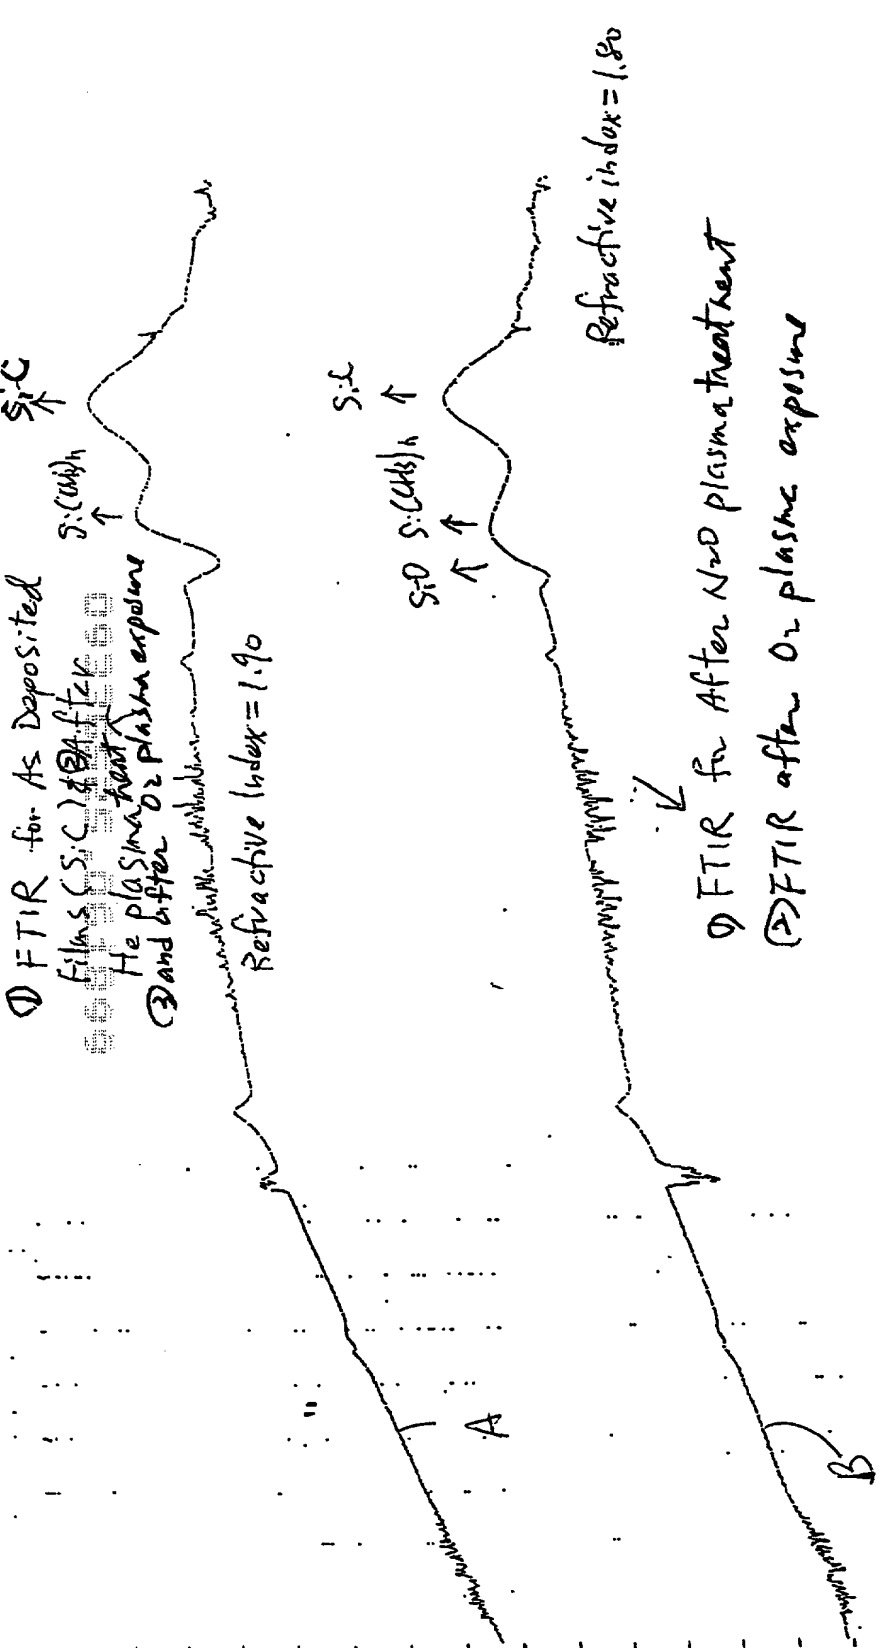 ① FTIR for As Deposited
Films (SiC) ② After
He plasma treatment
③ and after O2 plasma exposure
Si(CH3)n
SiC
Refractive Index = 1.90
A
SiO
Si(CH3)n
SiC
Refractive index = 1.80
1) FTIR for After N2O plasma treatment
(2) FTIR after O2 plasma exposure
B